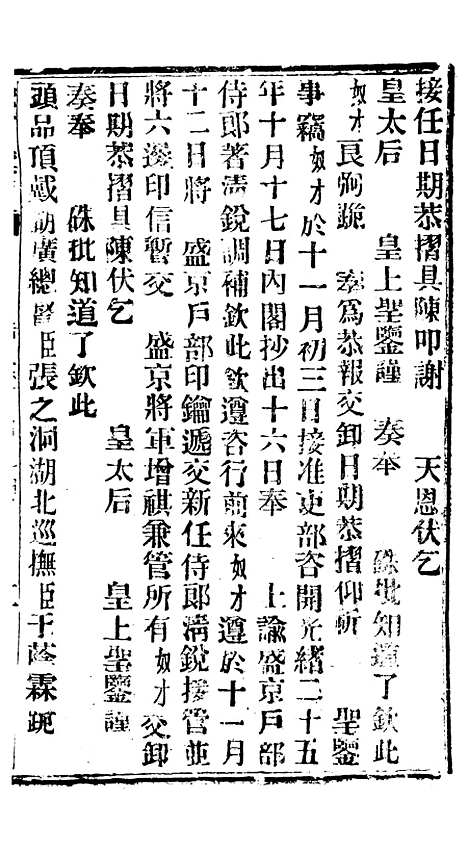 接任日期恭摺具陳叩謝　天恩伏乞
皇太后　皇上聖鑒謹　奏奉　硃批知道了欽此
奴才良弼跪　奏為恭報交卸日期恭摺仰祈　聖鑒
事竊奴才於十一月初三日接准吏部咨開光緒二十五
年十月十七日內閣抄出十六日奉　上諭盛京戶部
侍郎著清銳調補欽此欽遵咨行前來奴才遵於十一月
十二日將　盛京戶部印鑰遞交新任侍郎清銳接管並
將六邊印信暫交　盛京將軍增祺兼管所有奴才交卸
日期恭摺具陳伏乞　皇太后　皇上聖鑒謹
奏奉　硃批知道了欽此
頭品頂戴湖廣總督臣張之洞湖北巡撫臣于蔭霖跪